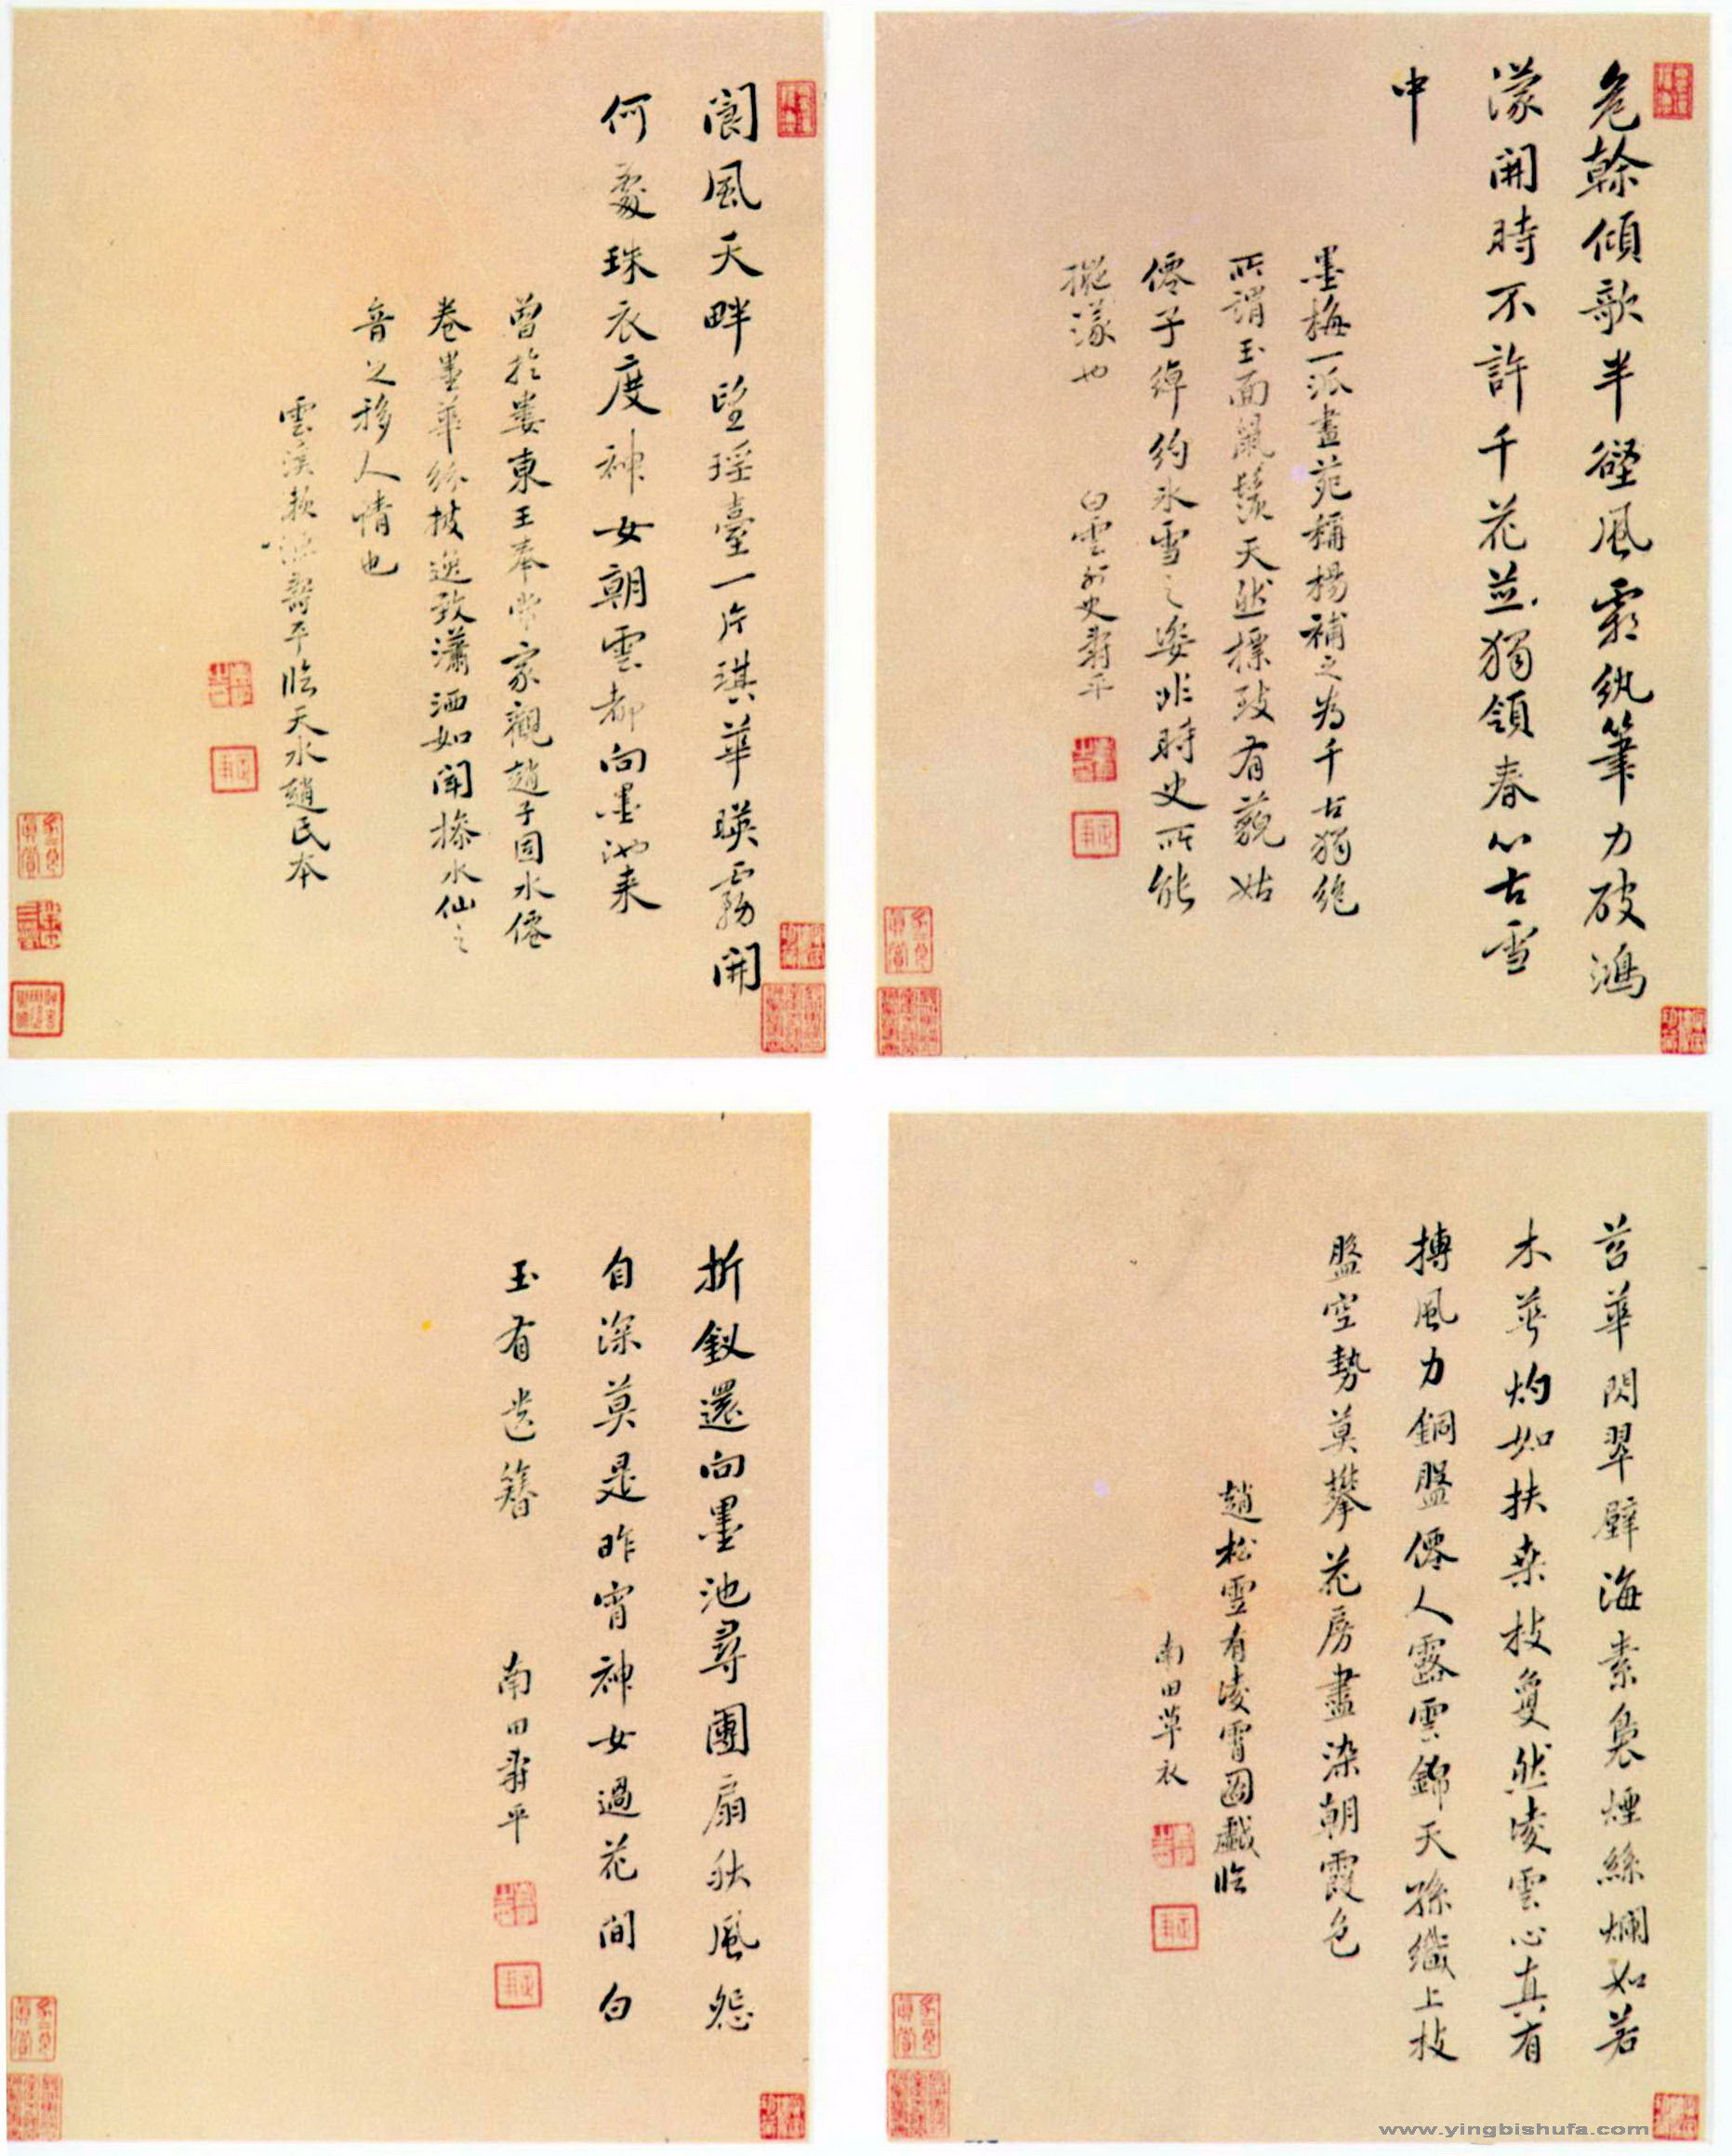 危榦傾歌半壁風霜紈筆力破鴻
濛開時不許千花並獨領春心古雪
中
墨梅一派畫苑稱楊補之為千古獨絕
所謂玉面風鬟天然標致有藐姑
僊子綽約冰雪之姿非時史所能
擬漾也
白雲外史壽平
閬風天畔望瑤臺一片淇華暎霧開
何處珠衣度神女朝雲都向墨池来
曾於婁東王奉常家觀趙子固水僊
卷墨華紛披逸致瀟洒如聞摻水仙之
音之移人情也
雲溪漁壽平臨天水趙氏本
苕華閃翠驛海素裊煙絲爛如若
木華灼如扶桒枝敻然凌雲心真有
摶風力銅盤僊人露雲錦天孫織上枝
盤空勢莫攀花房盡染朝霞色
趙松雪有凌霄圖戲臨
南田草衣
折釵還向墨池尋團扇秋風怨
自深莫是昨宵神女過花間白
玉有遺簪
南田壽平
www.yingbishufa.com